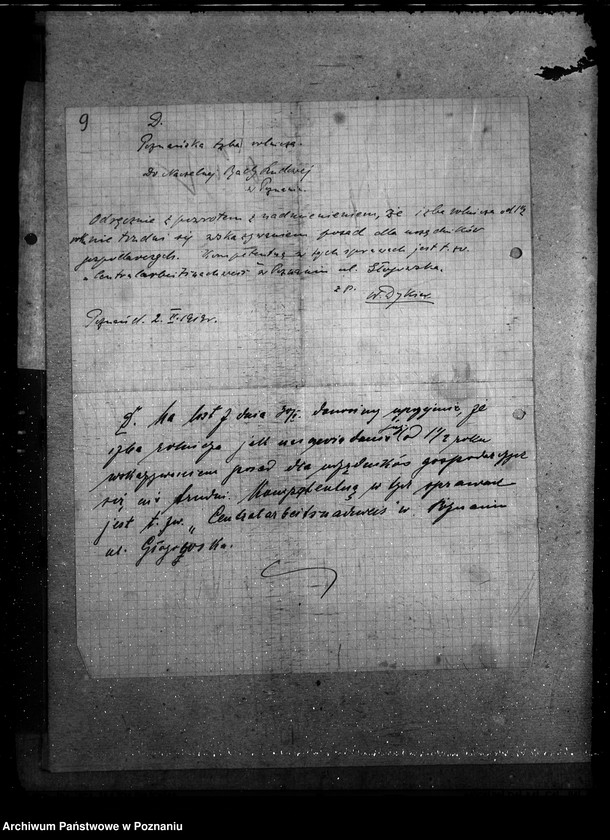 9
D.
Poznańska Izba rolnicza.
Do Naczelnej Rady Ludowej
w Poznaniu
Odręcznie z zwrotem z nadmienieniem, że izba rolnicza od 1½
roku nie trudni się wskazywaniem posad dla urzędników
gospodarczych. Kompetentną w tych sprawach jest t. zw.
"Centralarbeitsnachweis" w Poznaniu ul. Głogowska.
z p.
Poznań d. 2. 1919r.
Na list z dnia donosimy uprzejmie, że
izba rolnicza jak nas powiadamia od 1½ roku
wskazywaniem posad dla urzędników gospodarczych
się nie trudni. Kompetentną w tych sprawach
jest t. zw. "Centralarbeitsnachweis" w Poznaniu
ul. Głogowska.
Archiwum Państwowe w Poznaniu